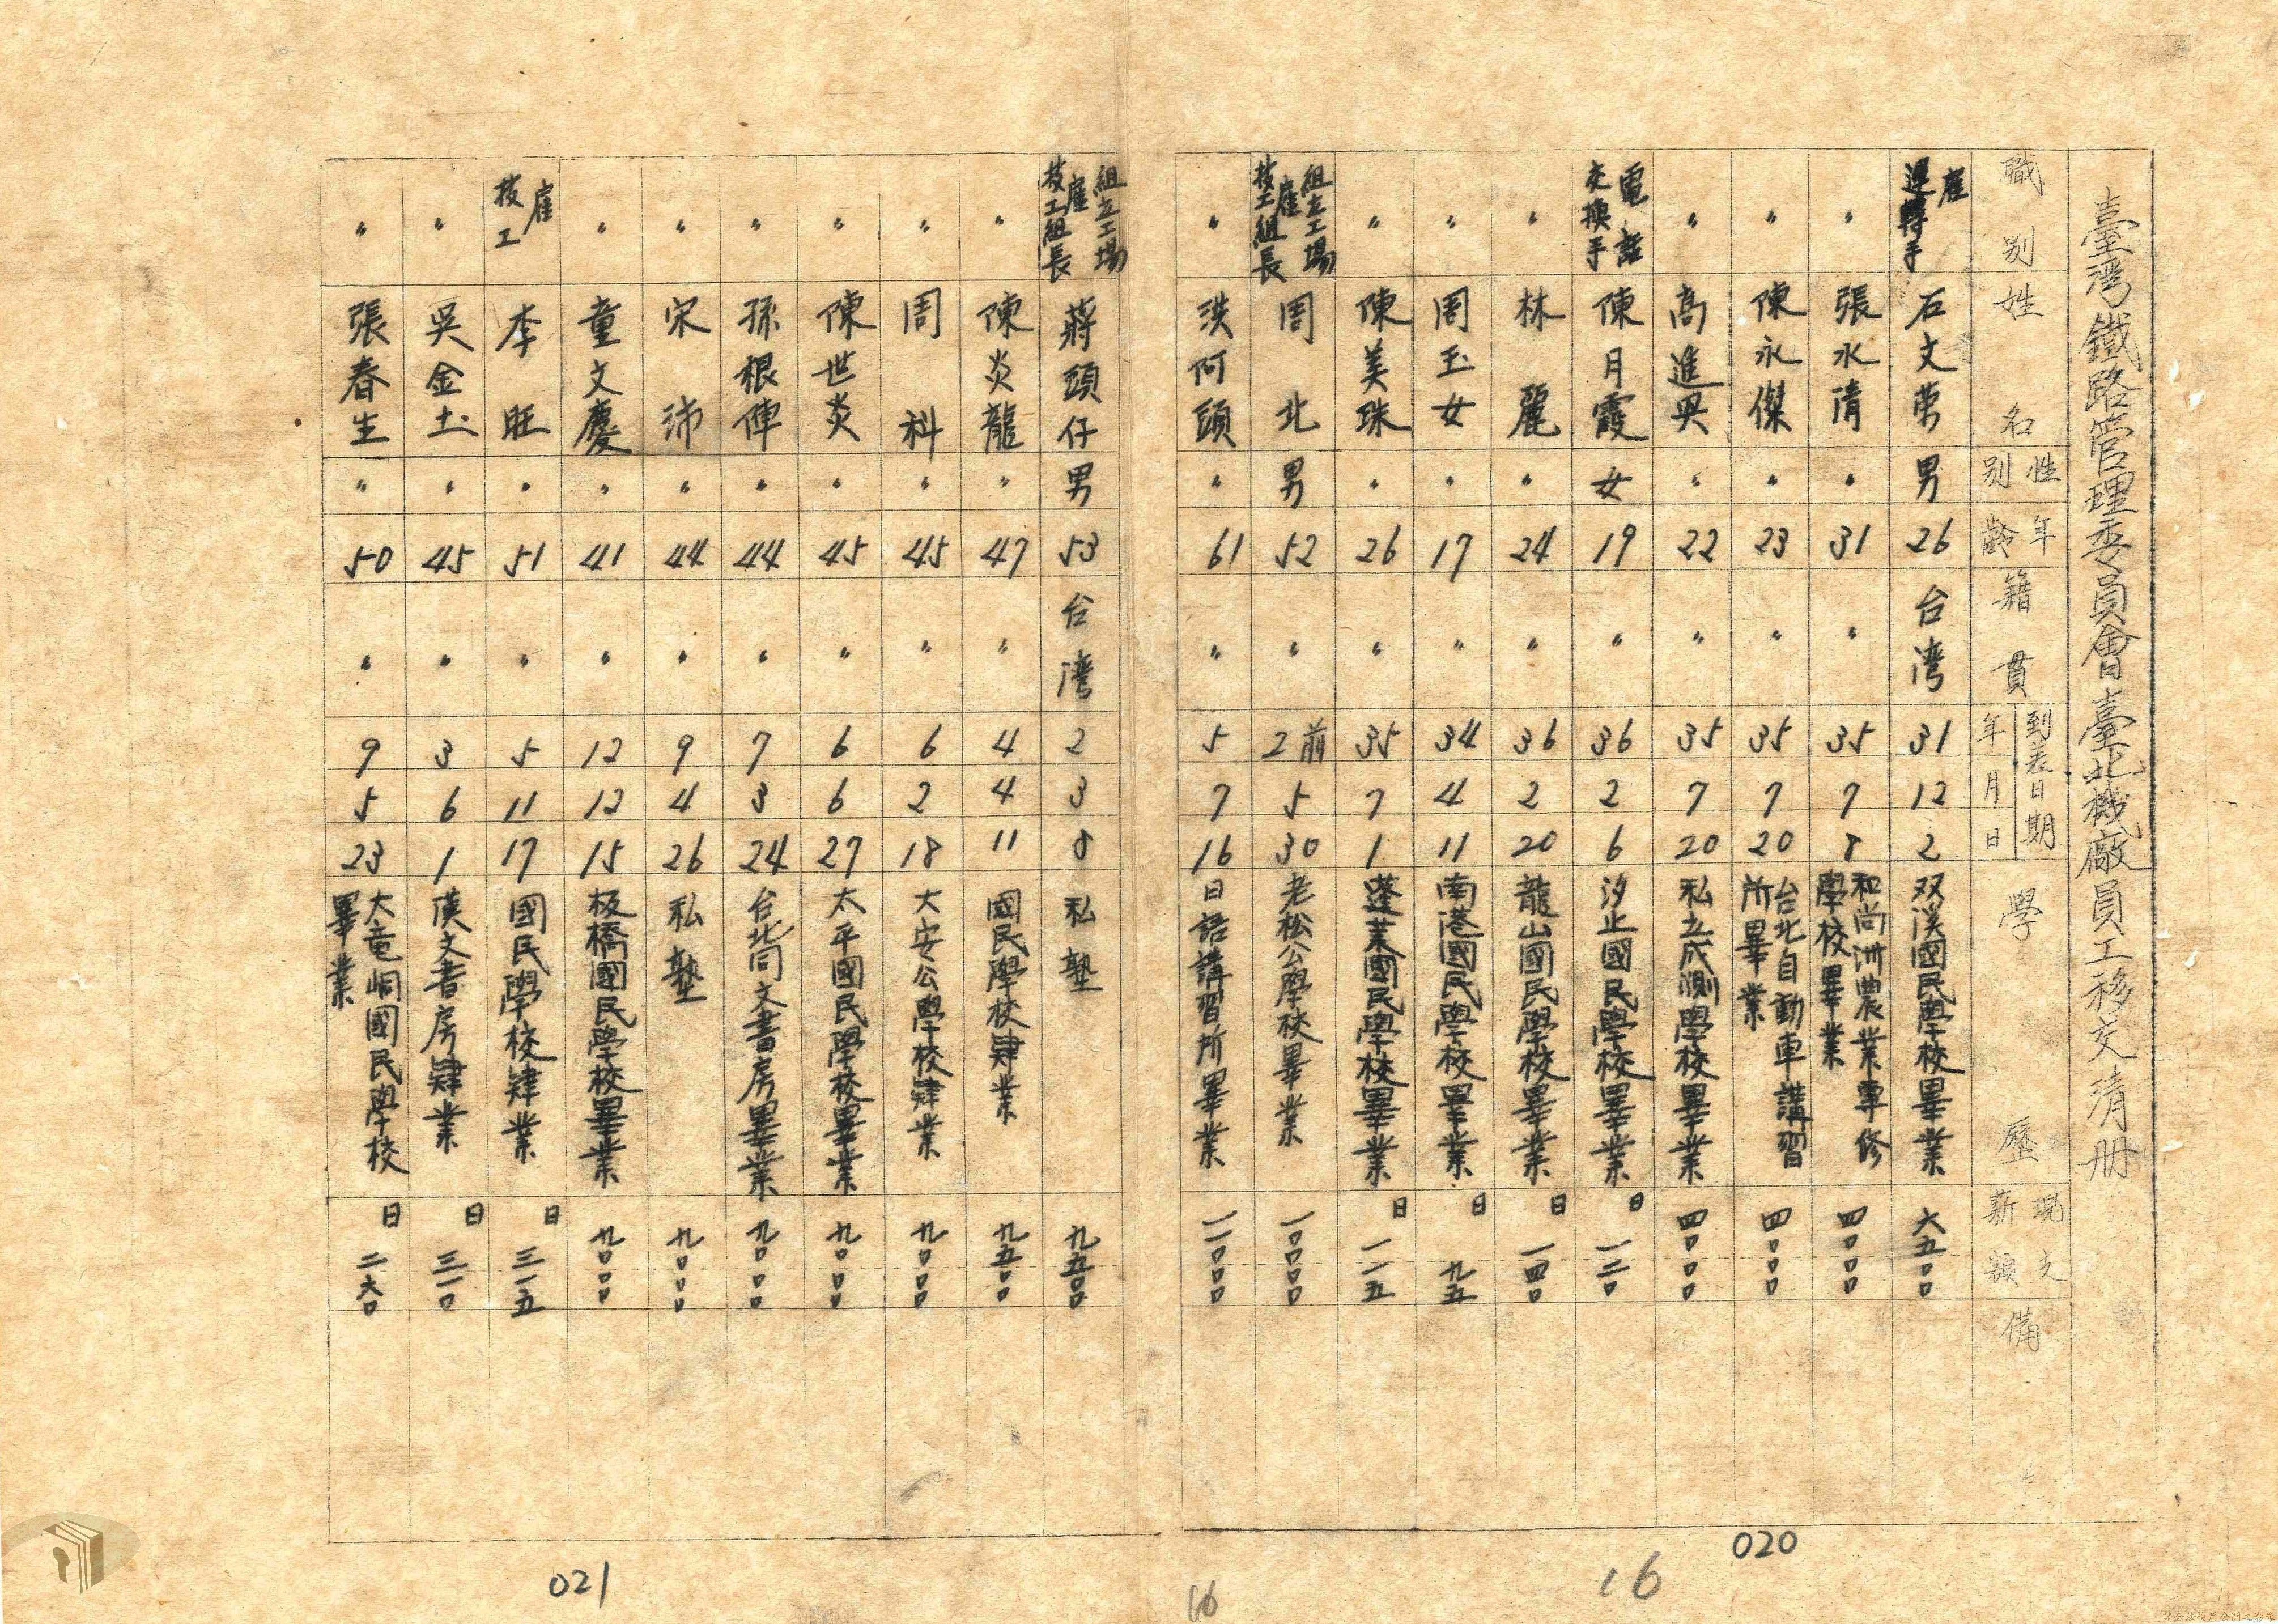 臺灣鐵路管理委員會臺北機廠員工移交清册
職別 姓名 性別 年齡 籍貫 到差日期 年 月 日 學歷 現支薪額 備
雇運轉手 石文榮 男 26 台湾 31 12 2 双溪國民學校畢業 六五〇〇
〃 張水清 〃 31 〃 35 7 8 和尚洲農業專修學校畢業 四〇〇〇
〃 陳永傑 〃 23 〃 35 7 20 台北自動車講習所畢業 四〇〇〇
〃 高進興 〃 22 〃 35 7 20 私立成淵學校畢業 四〇〇〇
電話交換手 陳月霞 女 19 〃 36 2 6 汐止國民學校畢業 日 一二〇
〃 林麗 〃 24 〃 36 2 20 龍山國民學校畢業 日 一四〇
〃 周玉女 〃 17 〃 34 4 11 南港國民學校畢業 日 九五
〃 陳美珠 〃 26 〃 35 7 1 蓬莱國民學校畢業 日 一一五
組立工場雇技工組長 周北 男 52 〃 2前 5 30 老松公學校畢業 一〇〇〇〇
〃 洪阿頭 〃 61 〃 5 7 16 日語講習所畢業 一一〇〇〇
組立工場雇技工組長 蔣頭仔 男 53 台湾 2 3 8 私塾 九五〇〇
〃 陳炎龍 〃 47 〃 4 4 11 國民學校肄業 九五〇〇
〃 周科 〃 45 〃 6 2 18 大安公學校肄業 九〇〇〇
〃 陳世炎 〃 45 〃 6 6 27 太平國民學校畢業 九〇〇〇
〃 孫根俥 〃 44 〃 7 3 24 台北同文書房畢業 九〇〇〇
〃 宋沛 〃 44 〃 9 4 26 私塾 九〇〇〇
〃 童文慶 〃 41 〃 12 12 15 板橋國民學校畢業 九〇〇〇
雇技工 李旺 〃 51 〃 5 11 17 國民學校肄業 日 三一五
〃 吳金土 〃 45 〃 3 6 1 漢文書房肄業 日 三一〇
〃 張春生 〃 50 〃 9 5 23 大竜峒國民學校畢業 日 二六〇
020
16
16
021